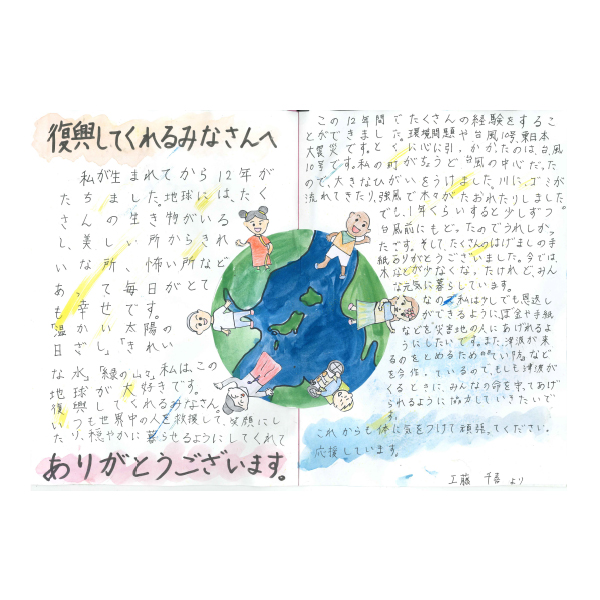 復興してくれるみなさんへ
私が生まれてから12年が
たちました。地球には、たく
さんの生き物がいる
し、美しい所からきれ
いな所、怖い所など
あって毎日がとて
も幸せです。
「温かい太陽の
日ざし」「きれい
な水」「緑の山々」私は、この
地球が大好きです。
復興してくれるみなさん。
いつも世界中の人を救援して、笑顔にし
たり、穏やかに暮らせるようにしてくれて
ありがとうございます。
この12年間でたくさんの経験をするこ
とができました。環境問題や台風10号、東日本
大震災です。とくに心に引っかかったのは、台風
10号です。私の町がちょうど台風の中心だった
ので、大きなひがいをうけました。川に、ゴミが
流れてきたり、強風で木々がたおれたりしました
でも、1年くらいすると少しずつ
台風前にもどったのでうれしかっ
たです。そして、たくさんのはげましの手
紙ありがとうございました。今では、
木などが少なくなったけれど、みん
な元気に暮らしています。
なので、私は少しでも恩返し
ができるように、ぼ金や手紙
などを災害地の人にあげれるよ
うにしたいです。また、津波が来
るのをとめるための防などを
を今作っているので、もしも津波が
くるときに、みんなの命を守ってあげ
られるように協力していきたいで
す。
これからも体に気をつけて頑張ってください。
応援しています。
工藤 より